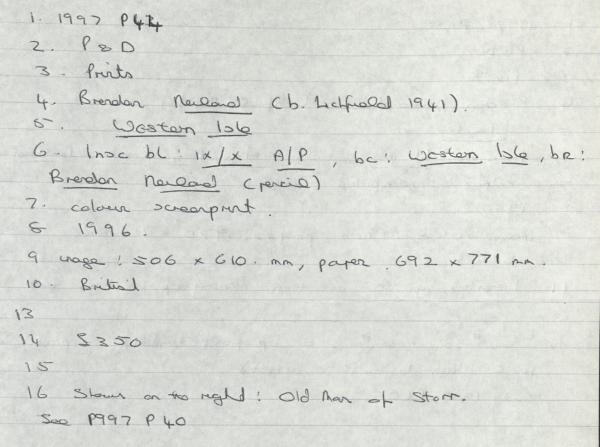 1. 1997 P44
2. P & D
3. Prints
4. Brendan Neiland (b. Lichfield 1941).
5. Western Isle
6. Insc bl: ix/x A/P, bc: Western Isle, bR:
Brendan Neiland (pencil)
7. colour screenprint.
8 1996.
9 image: 506 x 610. mm, paper 692 x 771 mm.
10. British
13
14 £350
15
16 Shows on the right: Old Man of Storr.
See P997 P40